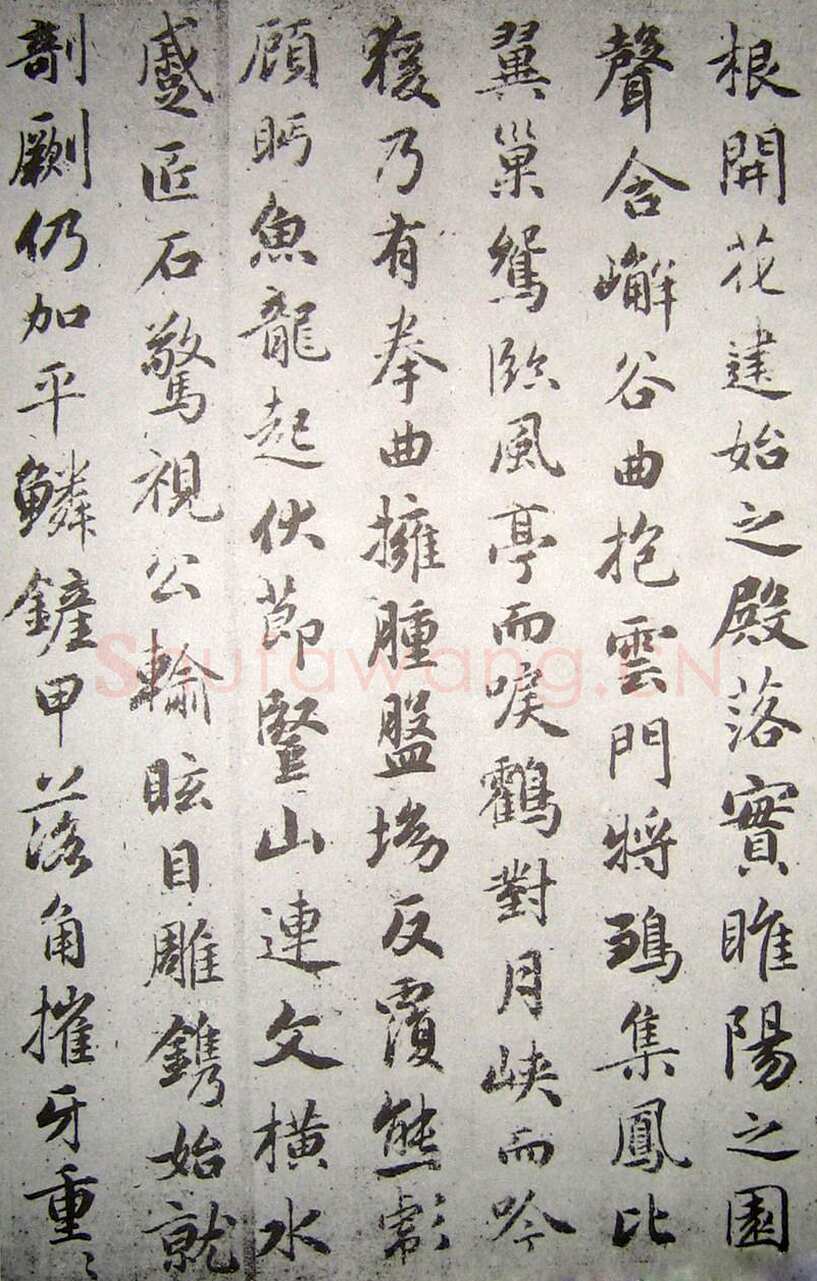 根開花建始之殿落實睢陽之園
聲含嶰谷曲抱雲門將鶵集鳳比
翼巢鴛臨風亭而唳鶴對月峽而吟
猨乃有拳曲擁腫盤坳反覆熊彪
顧眄魚龍起伏節豎山連文橫水
蹙匠石驚視公輸眩目雕鐫始就
剞劂仍加平鱗鏟甲落角摧牙重〻
Shufawang.CN